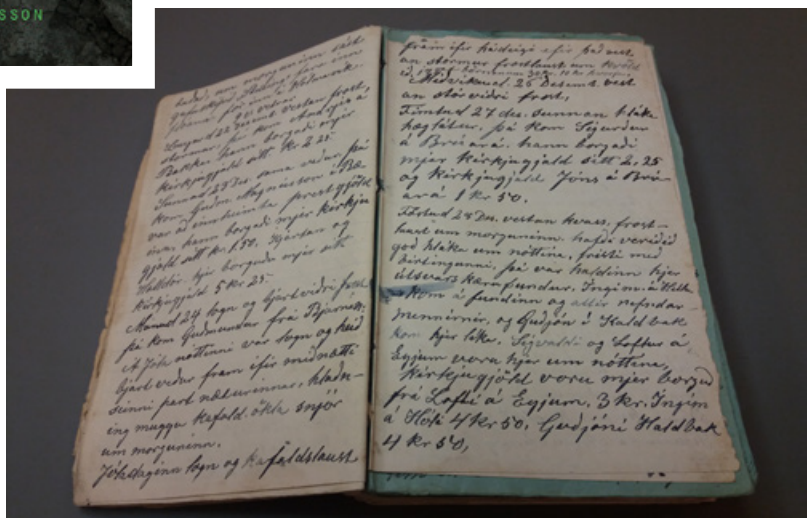 SSON
um morguninn sást
21 vetrar
Laugard 22 Desemb vestan frost,
stormur, þá kom Andrjes á
Bakka, hann borgaði mjer
kirkjugjald sitt kr 2.25.
Sunnud 23 Des. sama veður, þá
kom Guðm Magnússon í Bæ
var að innheimta prestgjöld
hann borgaði mjer kirkju
gjald sitt kr. 1.50. Kjartan og
hjer borguðu mjer sitt
kirkjugjald 5 kr 25.
Mánud 24 logn og bjartviðri frost
þá kom Guðmundur frá Bjarnarn:
Á Jóla nóttinni var logn og heið
bjart veður fram ifir miðnætti
seinni part næturinnar, hlaðn-
ing mugga kafald. ökla snjór
um morguninn.
Jóladaginn logn og kafaldslaust
fram ifir hádeigi efir það vest
an stormur frostlaust um kvöld
ið,
Miðvikud. 26 Desemb. vest
an stór viðri frost,
Fimtud 27 des. sunnan hláka
hæglátur, þá kom Sigurður
á Brúará. hann borgaði
mjer kirkjugjald sitt 2,25
og kirkjugjald Jóns á Brú
ará 1 kr 50.
Föstud 28 Des. vestan kvass, frost-
laust um morguninn. hafði verið
góð hláka um nóttina, fristi með
birtingunni, þá var haldinn hjer
útsvars kæru fundur. Ingim. á
kom á fundinn og allir nefndar
mennirnir, og Guðjón í Kaldbak
kom hjer líka. Sigvaldi og Loftur á
Eyjum voru hjer um nóttina,
kirkjugjöld voru mjer borguð
frá Lofti á Eyjum, 3 kr. Ingim
á Hóli 4 kr 50, Guðjóni Kaldbak
4 kr 50,